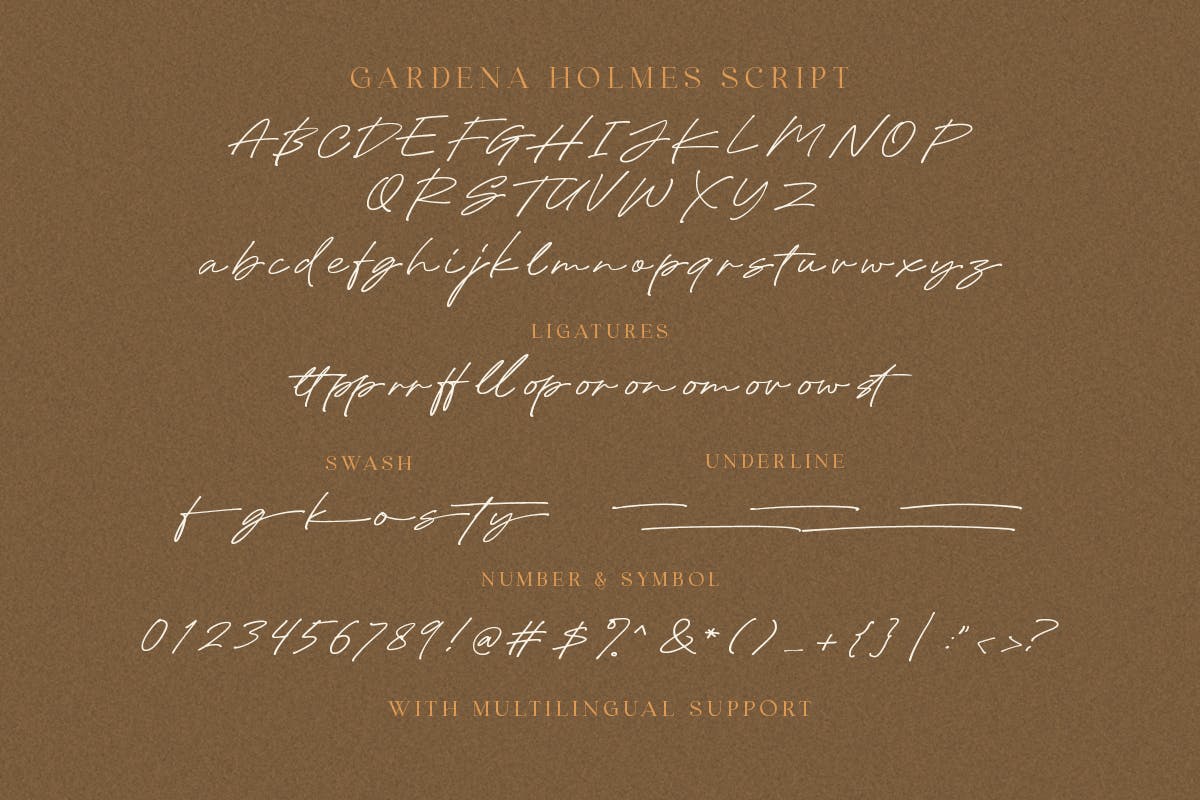 GARDENA HOLMES SCRIPT
A B C D E F G H I J K L M N O P
Q R S T U V W X Y Z
a b c d e f g h i j k l m n o p q r s t u v w x y z
LIGATURES
tt pp rr ff ll op or on om ov ow st
SWASH
UNDERLINE
f g k o s t y
NUMBER & SYMBOL
0 1 2 3 4 5 6 7 8 9 ! @ # $ % ^ & * ( ) _ + { } | : " < > ?
WITH MULTILINGUAL SUPPORT